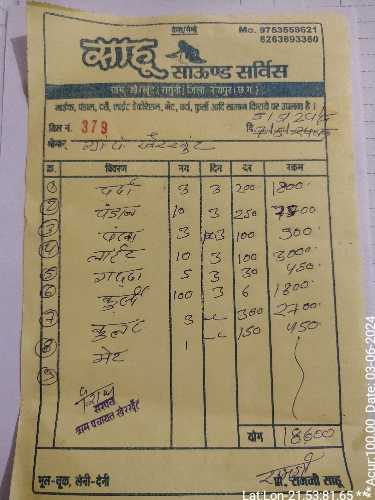 कैश/मेमो
Mo. 9753558621
6263893350
साहू
साऊण्ड सर्विस
माईक, पंडाल, दरी, लाईट डेकोरेशन, गेट, पर्दा, कुर्सी आदि सामान किराये पर उपलब्ध है।
बिल नं. 379
दि.
श्रीमान्
क्र. विवरण नग दिन दर रकम
1 पर्दा 3 3 200 1800
2 पंडाल 10 3 250 7500
3 पंखा 3 3 100 900
4 लाईट 10 3 100 3000
5 गद्दा 5 3 30 450
6 कुर्सी 100 3 6 1800
7 कुलर 3 300 2700
8 गेट 1 150 450
9
सरपंच
ग्राम पंचायत खैरखूंट
योग 18600
भूल-चूक, लेनी-देनी
प्रो. रामजी साहू
Lat:Lon-21.53:81.65 *** Acur:100.00, Date: 03-06-2024